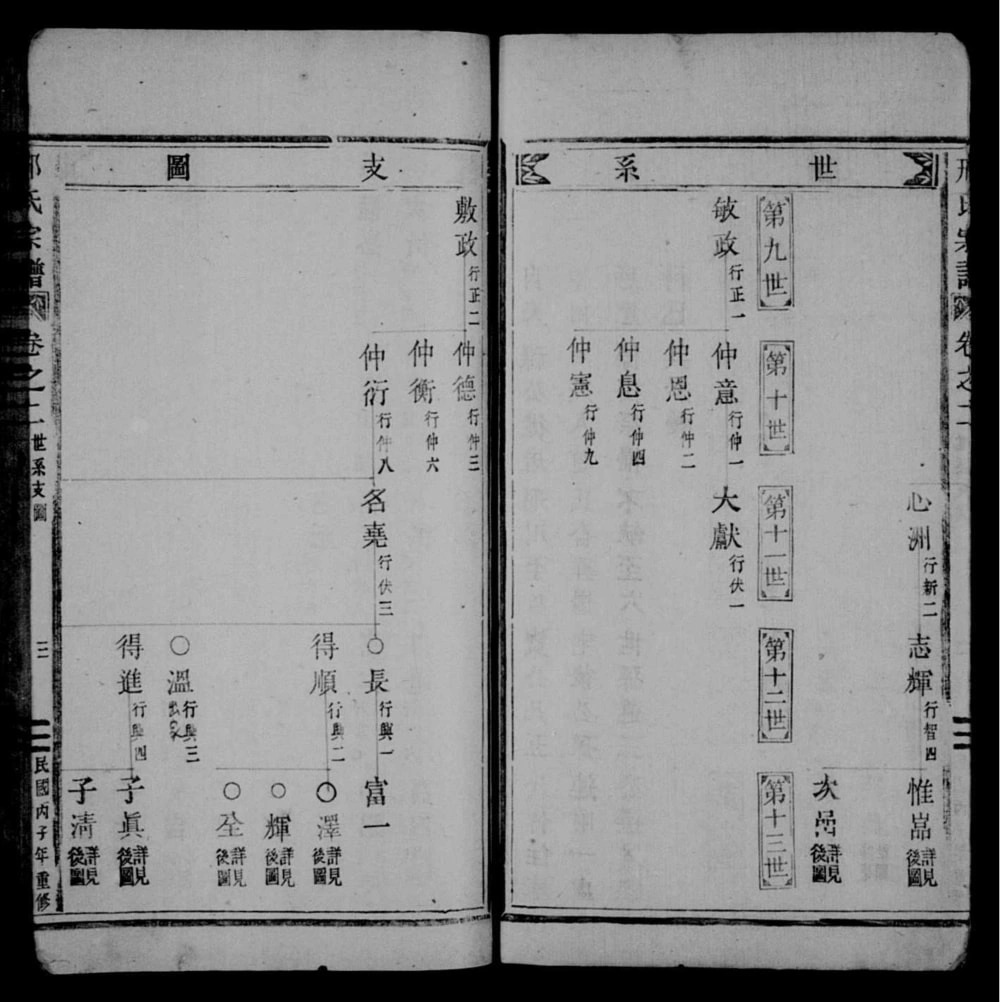 世系
心洲 行新二
志輝 行智四
惟嵓 詳見後圖
次嵒 詳見後圖
第九世
第十世
第十一世
第十二世
第十三世
敏政 行正一
仲意 行仲一
大獻 行伏一
仲恩 行仲二
仲息 行仲四
仲憲 行仲九
支圖
敷政 行正二
仲德 行仲三
仲衡 行仲六
仲衍 行仲八
名堯 行伏三
○長 行興一
富一
得順 行興二
○澤 詳見後圖
○輝 詳見後圖
○全 詳見後圖
○溫 行興三
得進 行興四
子眞 詳見後圖
子清 詳見後圖
氏宗譜 卷之二 世系支圖 三 民國丙子年重修